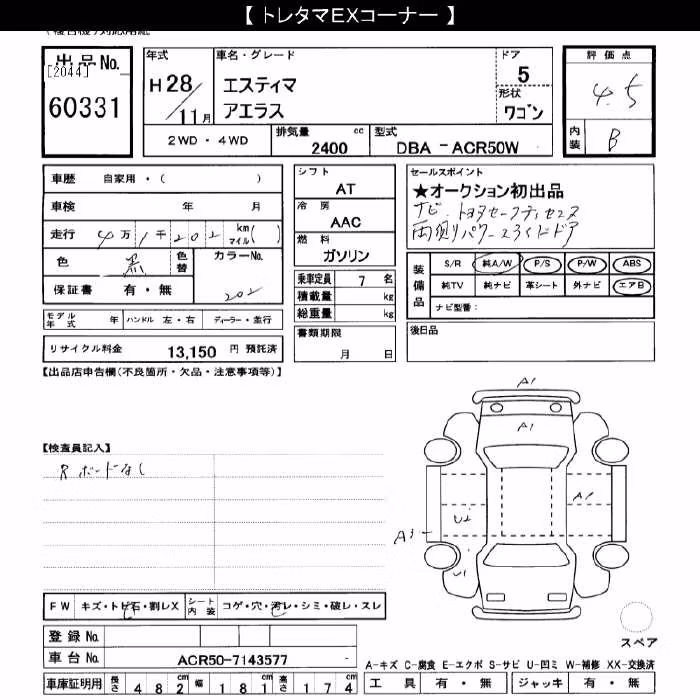 【 トレタマEXコーナー 】
出品No.
[2044]
60331
年式
H 28/11月
車名・グレード
エスティマ
アエラス
ドア
5
形状
ワゴン
評価点
4.5
内装
B
2WD・4WD
排気量
2400
cc
型式
DBA -ACR50W
車歴 自家用・( )
車検 年 月
走行 4万1千202 km マイル( )
色 黒
色替
カラーNo.
202
保証書 有・無
モデル年式 年
ハンドル 左・右
ディーラー・並行
リサイクル料金 13,150 円 預託済
シフト
AT
冷房
AAC
燃料
ガソリン
乗車定員 7 名
積載量 kg
総重量 kg
書類期限
月 日
セールスポイント
★オークション初出品
ナビ トヨタセーフティセンス
両側パワースライドドア
装備品
S/R 純A/W P/S P/W ABS
純TV 純ナビ 革シート 外ナビ エアB
ナビ型番:
後日品
【出品店申告欄(不良箇所・欠品・注意事項等)】
【検査員記入】
Rボードなし
A1
A1
A1
A3
U2
U1
FW キズ・トビ石・割レX
シート内装 コゲ・穴・汚レ・シミ・破レ・スレ
登録No.
車台No. ACR50-7143577 -
車庫証明用 長さ 482cm 幅 181cm 高さ 174cm
スペア
A-キズ C-腐食 E-エクボ S-サビ U-凹ミ W-補修 XX-交換済
工具 有・無 ジャッキ 有・無